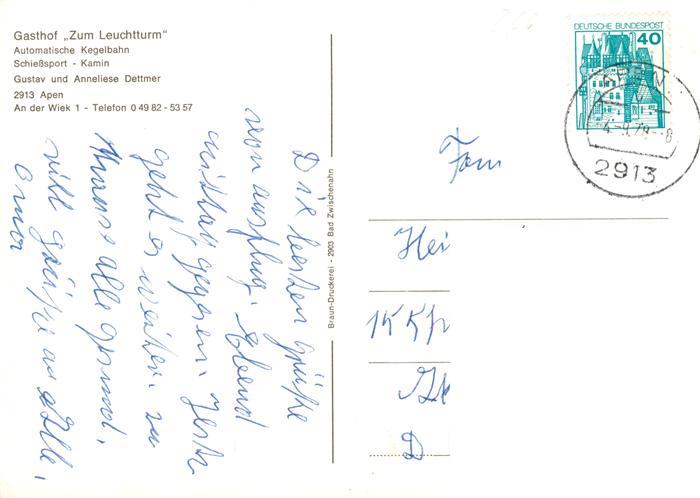 Gasthof „Zum Leuchtturm"
Automatische Kegelbahn
Schießsport - Kamin
Gustav und Anneliese Dettmer
2913 Apen
An der Wiek 1 - Telefon 0 49 82 - 53 57
Die besten Grüße
von Ausflug.
mittag gegessen. Jetzt
geht es weiter. zu
Hause alle gesund.
viele Grüße an alle.
Oma
Braun-Druckerei - 2903 Bad Zwischenahn
DEUTSCHE BUNDESPOST
40
APEN
2913
Fam
Hei
D